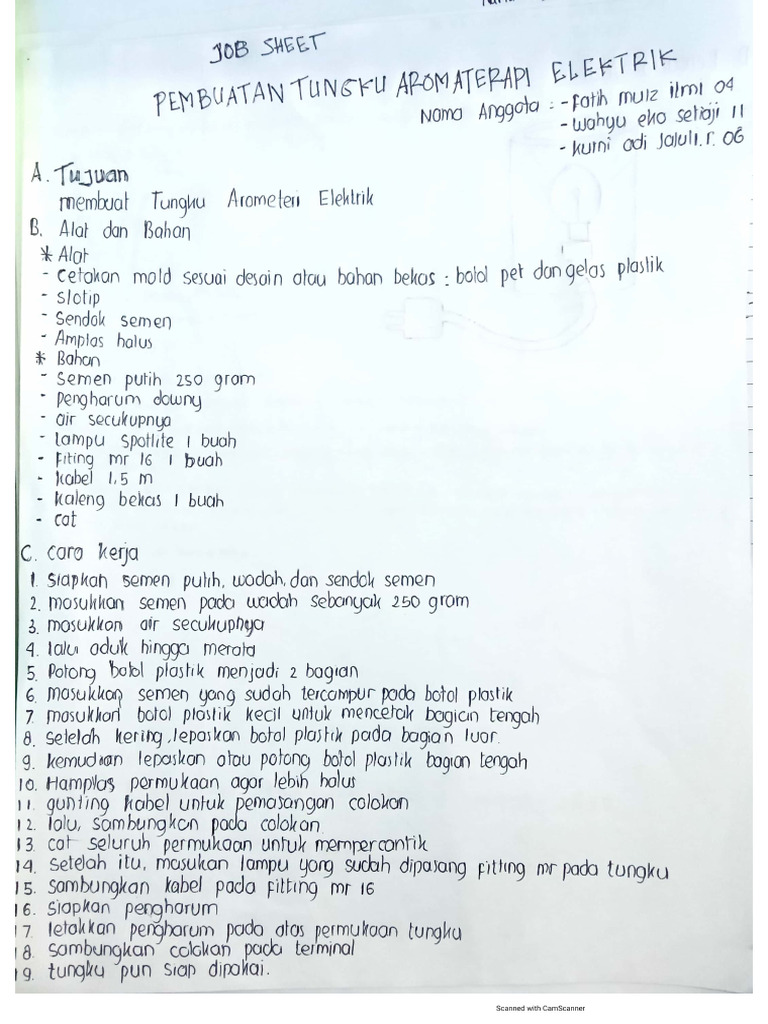 JOB SHEET
PEMBUATAN TUNGKU AROMATERAPI ELEKTRIK
Nama Anggota : - Fatih muiz ilmi 04
- wahyu eko setiaji 11
- kurni adi Jaluli.r. 06
A. Tujuan
membuat Tungku Arometeri Elektrik
B. Alat dan Bahan
* Alat
- Cetakan mold sesuai desain atau bahan bekas : botol pet dan gelas plastik
- Slotip
- Sendok semen
- Amplas halus
* Bahan
- Semen putih 250 gram
- pengharum downy
- air secukupnya
- lampu spotlite 1 buah
- Fiting mr 16 1 buah
- kabel 1,5 m
- kaleng bekas 1 buah
- cat
C. Cara kerja
1. Siapkan semen putih, wadah, dan sendok semen
2. masukkan semen pada wadah sebanyak 250 gram
3. masukkan air secukupnya
4. lalu aduk hingga merata
5. Potong botol plastik menjadi 2 bagian
6. masukkan semen yang sudah tercampur pada botol plastik
7. masukkan botol plastik kecil untuk mencetak bagian tengah
8. Setelah kering, lepaskan botol plastik pada bagian luar.
9. kemudian lepaskan atau potong botol plastik bagian tengah
10. Hamplas permukaan agar lebih halus
11. gunting kabel untuk pemasangan colokan
12. lalu, sambungkan pada colokan
13. cat seluruh permukaan untuk mempercantik
14. Setelah itu, masukan lampu yang sudah dipasang fitting mr pada tungku
15. Sambungkan kabel pada fitting mr 16
16. Siapkan pengharum
17. letakkan pengharum pada atas permukaan tungku
18. Sambungkan colokan pada terminal
19. tungku pun siap dipakai.
Scanned with CamScanner